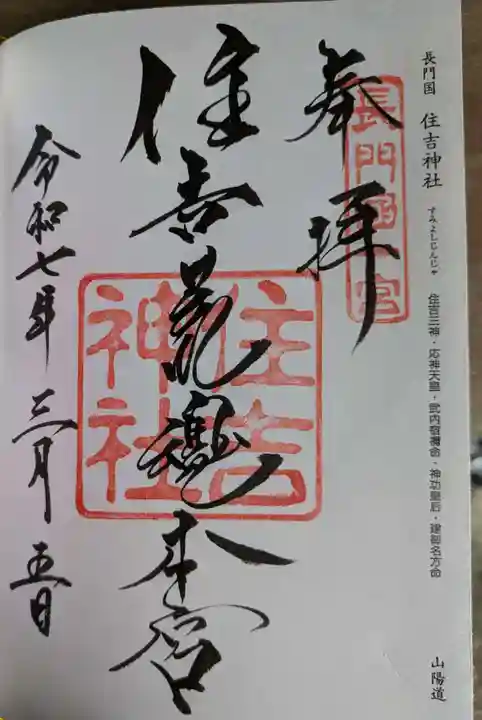 長門国 住吉神社 すみよしじんじゃ 住吉三神・応神天皇・武内宿禰命・神功皇后・建御名方命 山陽道
奉拝
長門國一宮
住吉荒魂本宮
住吉神社
令和七年三月五日